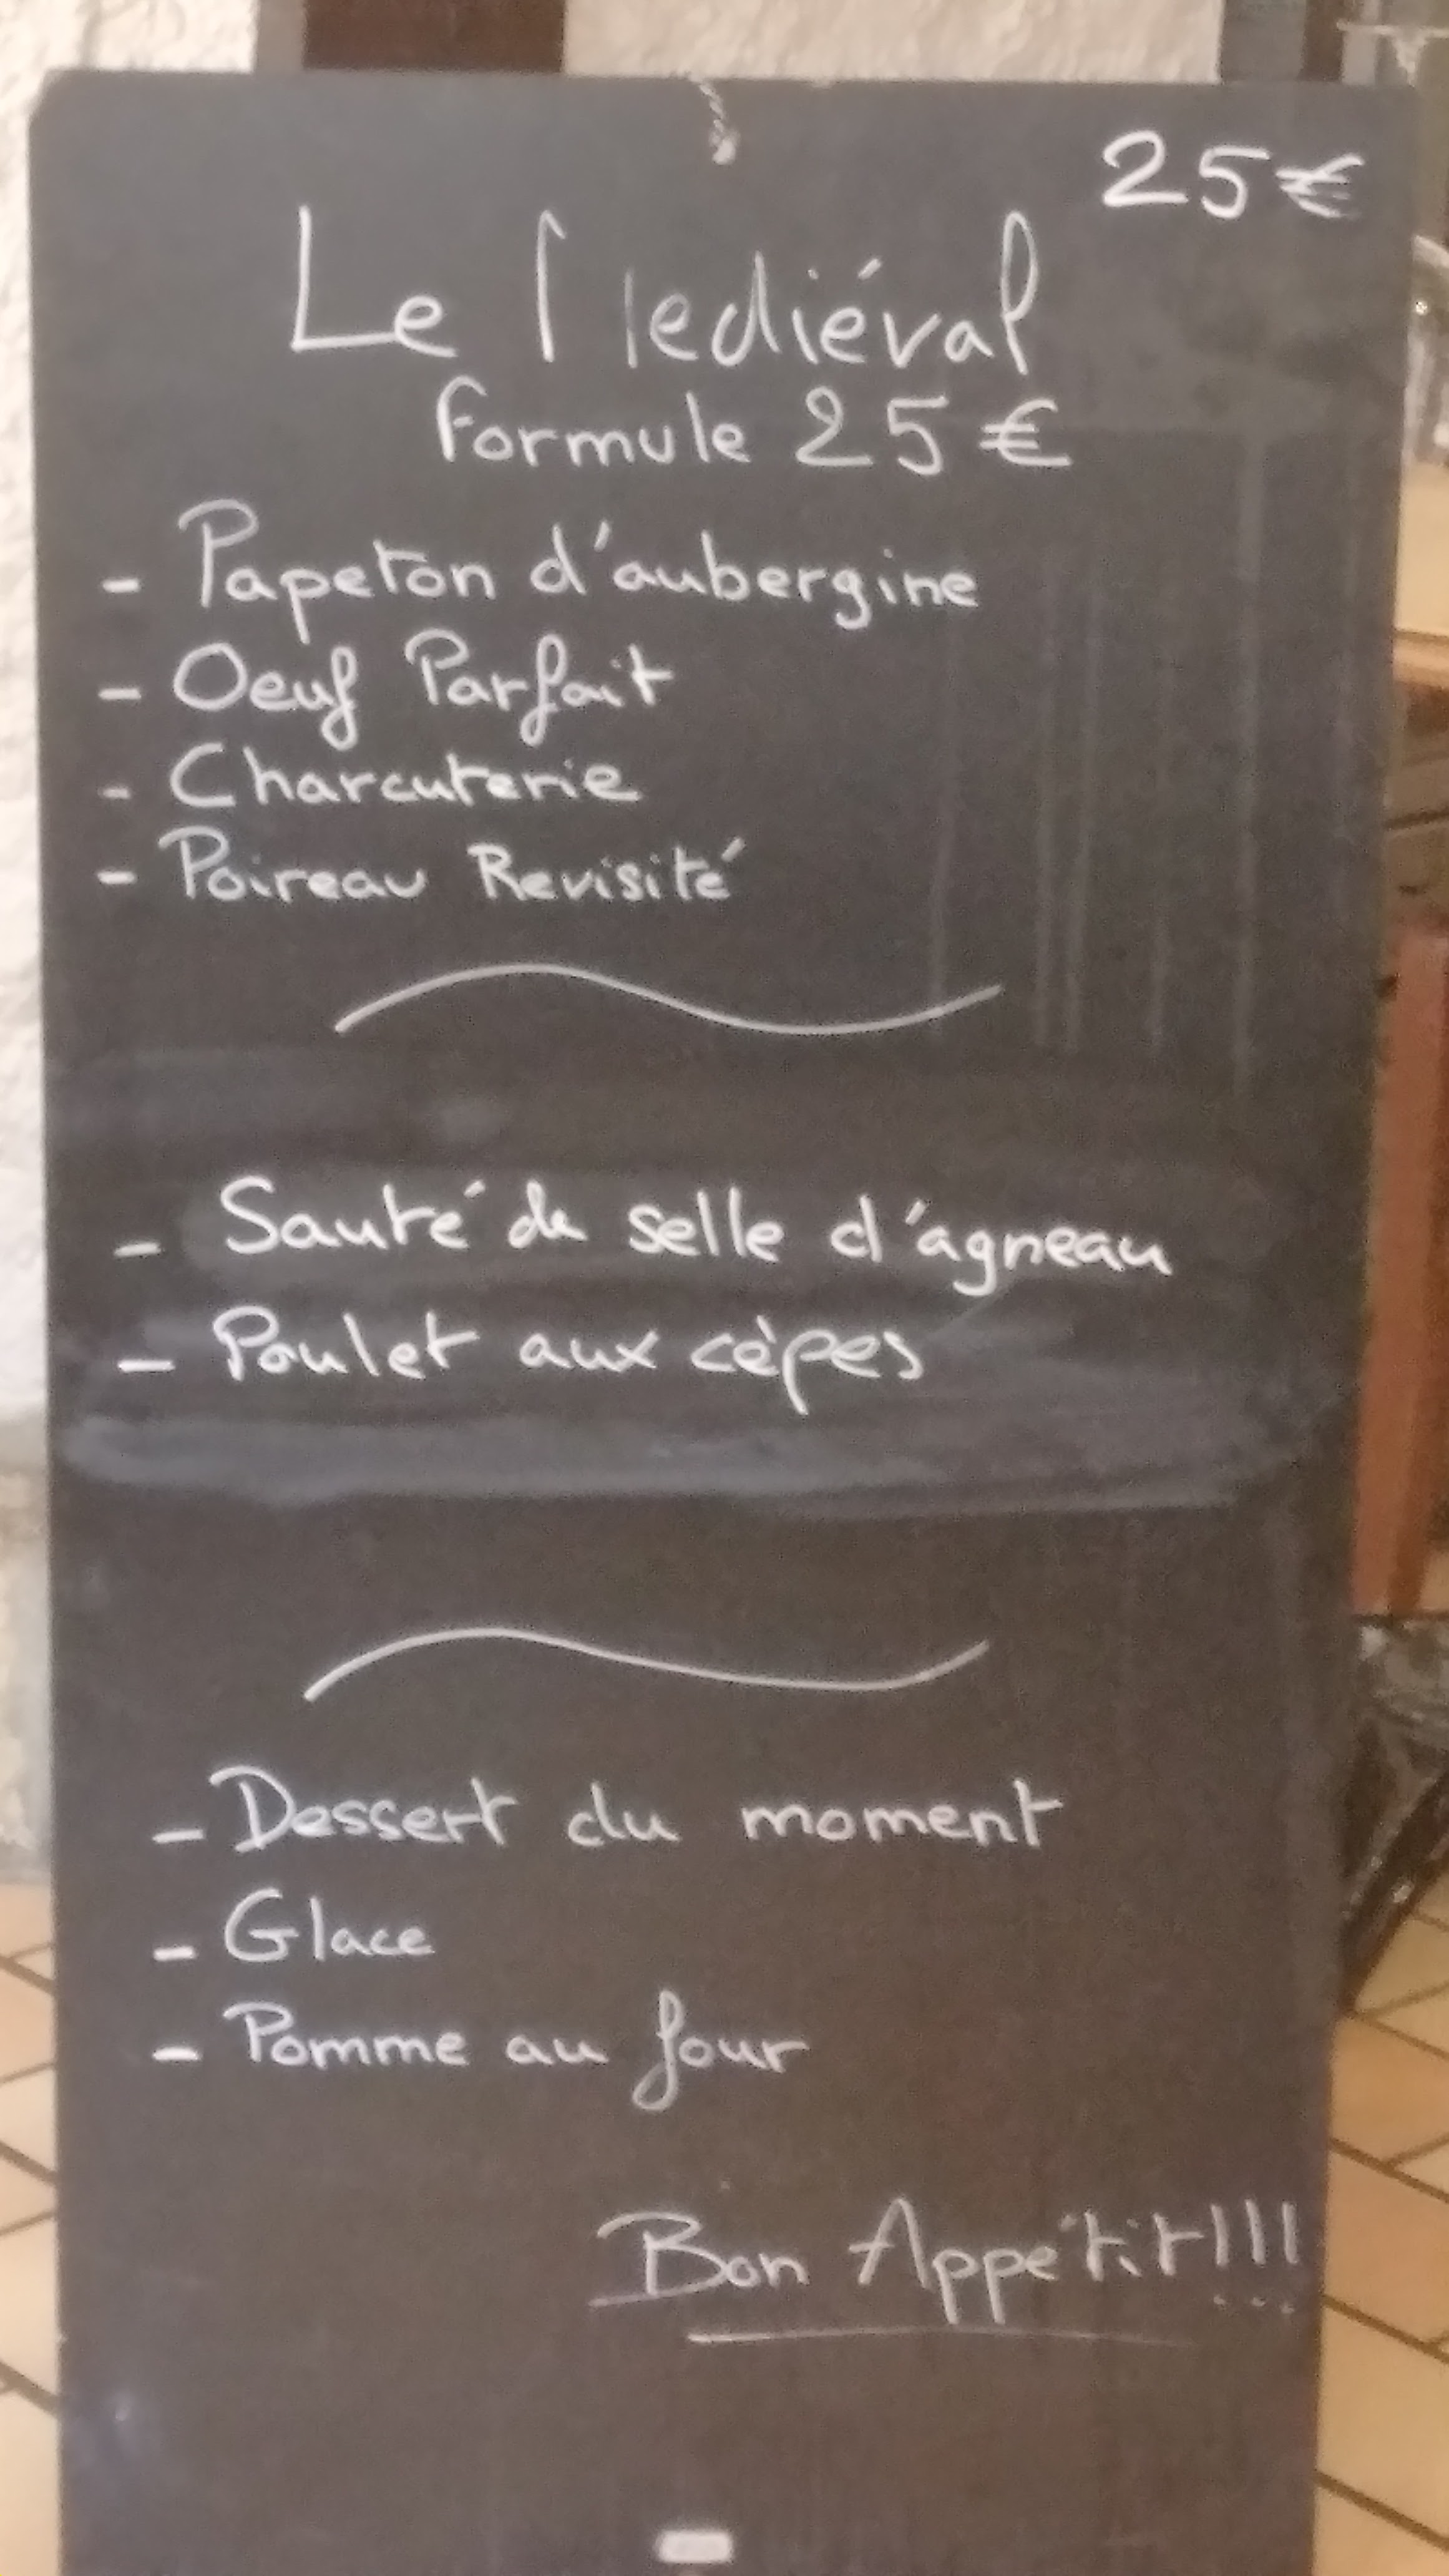 25€
Le Mediéval
Formule 25€
- Papeton d'aubergine
- Oeuf Parfait
- Charcuterie
- Poireau Revisité
- Sauté de selle d'agneau
- Poulet aux cèpes
- Dessert du moment
- Glace
- Pomme au four
Bon Appétit!!!